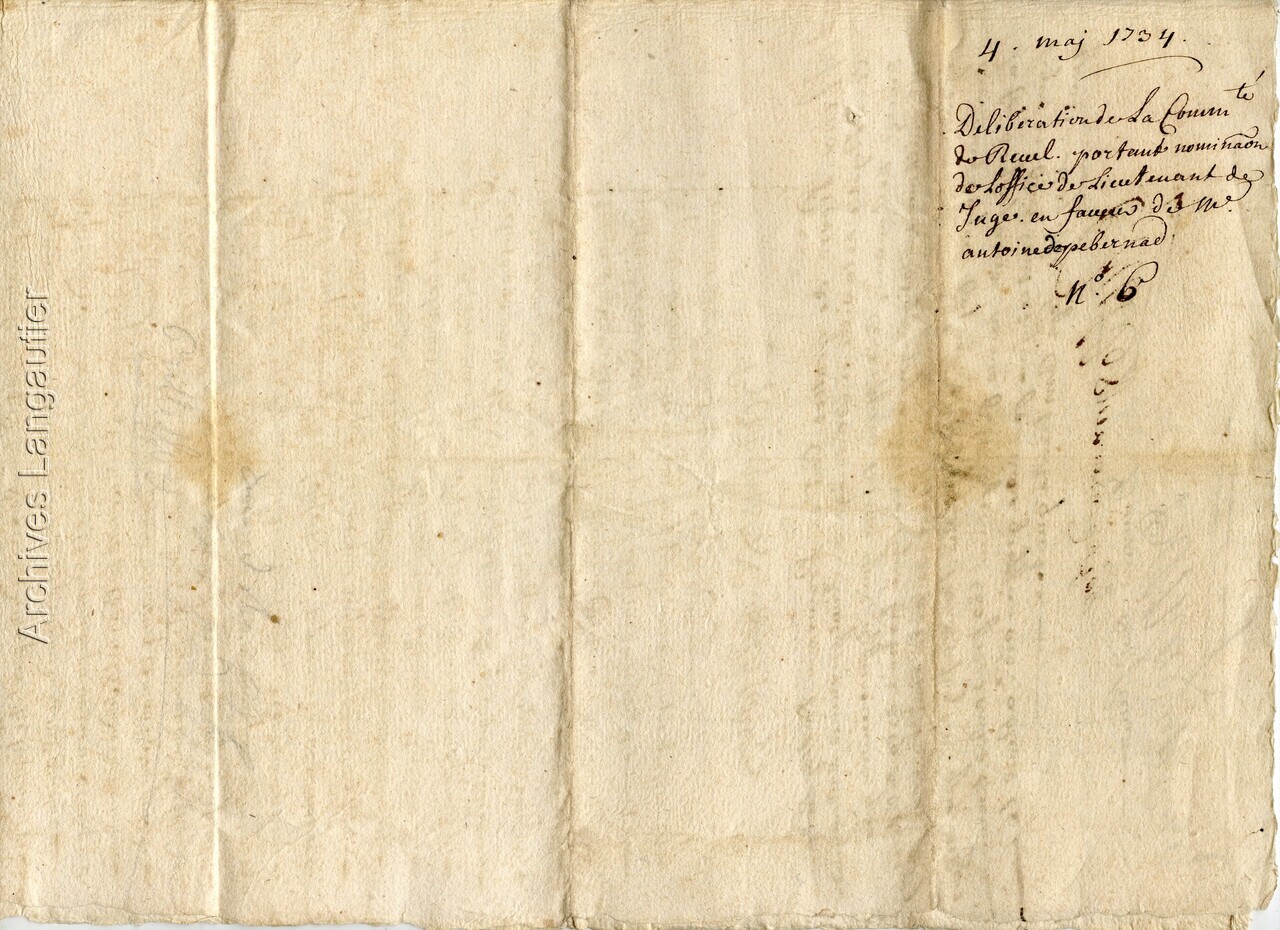 4. maj 1734.
Deliberation de La Comm.té
de Reuel. portant nominaon
de Loffice de Lieutenant de
Juge. en faueur de Me
antoine de pebernad
No. 6
Archives Langautier